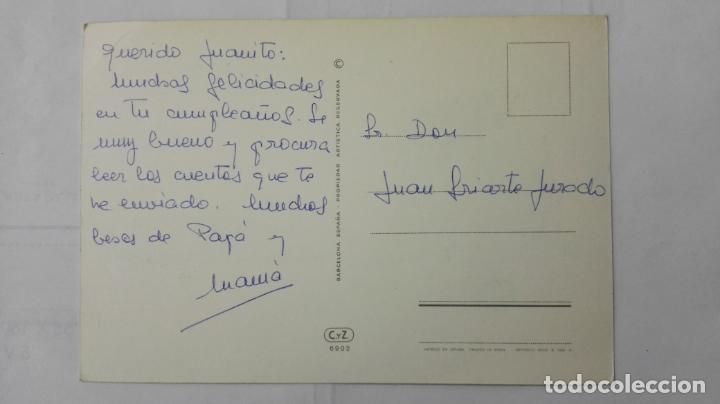 Querido Juanito:
Muchas felicidades
en Tu cumpleaños. Se
muy bueno y procura
leer los cuentos que te
he enviado. Muchos
besos de Papá y
Mamá
©
BARCELONA ESPAÑA - PROPIEDAD ARTÍSTICA RESERVADA
C.yZ.
6902
Sr. Don
Juan Jurado
todocoleccion.net